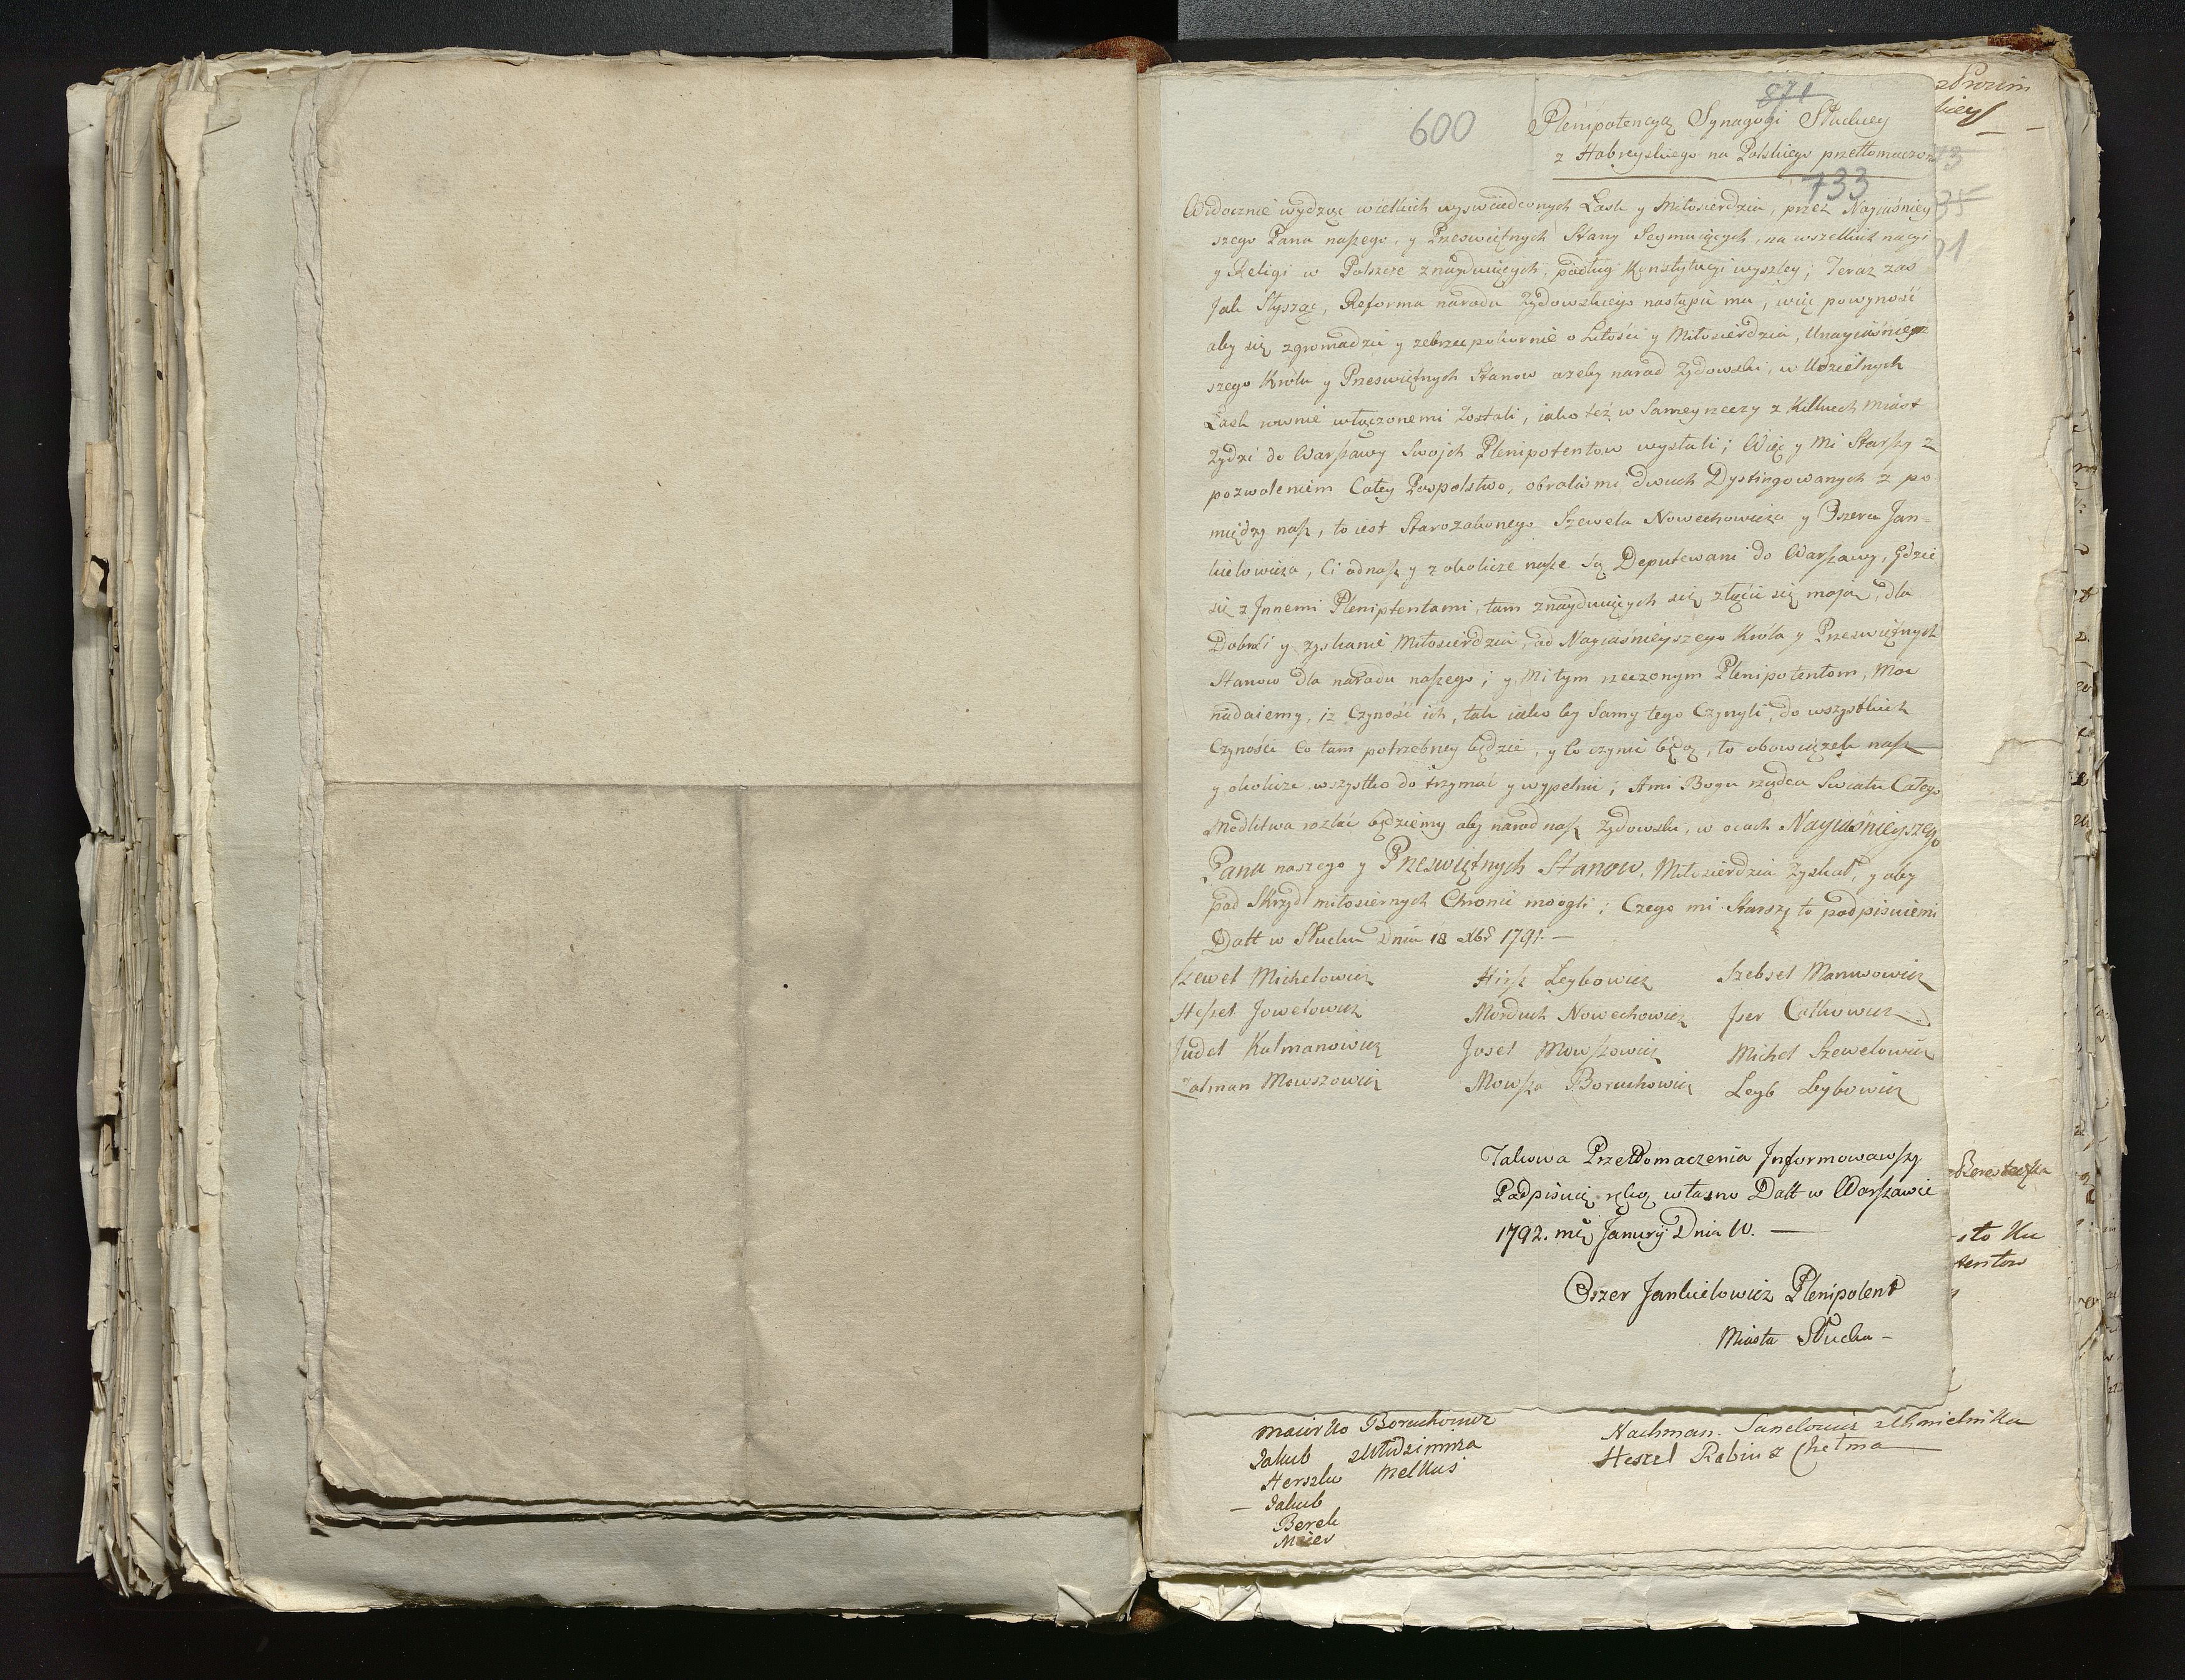 871
600
Plenipotencyą Synagogi Słuckiey
z Habreyskiego na Polskiego przetłomaczona
733
Widocznie wydząc wielkich wyswiadconych Łask y Miłosierdzia, przez Nayiaśniey
szego Pana naszego, y Przeswiętnych Stany Seymuiących, na wszelkich nacyi
y Religi w Polszcze znayduiących, podług Konstytucyi wyszłey; Teraz zas
Jak Słysząc, Reforma narodu Żydowskiego nastąpic ma, więc powyność
aby się zgromadzic y zebrzec pokornie o Litości y Miłosierdzia, Unayiaśniey
szego Króla y Przeswiętnych Stanow azeby narod Żydowski, w Udzielnych
Łask rownie włączonemi Zostali, iako też w Samey rzeczy z Kilkuch Miast
Żydzi do Warszawy Swojch Plenipotentow wysłali; Więc y Mi Starszy z
pozwoleniem Całey Pospolstwo, obraliśmi dwuch Dystingowanych z po
między nasz, to iest Starozakonego Szewela Nowechowicza y Oszera Jan=
kielowicza, Ci od nasz y z okolicze nasze Są Deputowani do Warszawy, Gdzie
się z Jnnemi Pleniptentami, tam znayduiących się złącic się maja, dla
Dobroci y zyskanie Miłosierdzia, od Nayiaśnieyszego Króla y Przeswiętnych
Stanow dla narodu naszego; y Mi tym rzeczonym Plenipotentom, Moc
nadaiemy, iz Czyność ich, tak iako by Samy tego Czynyli, do wszystkich
Czyności Co tam potrzebney będzie, y Co czynic będą, to obowiązek nasz
y okolicze wszystko do trzymać y wypełnic; A mi Bogu rządca Swiata Całego
Modlitwa rozlać będziemy aby narod nasz Żydowski, w ocach Nayiaśnieyszego
Pana naszego y Przeswiętnych Stanow, Miłosierdzia Zyskał, y aby
pod Skrzydł miłosiernych Chronic moogli; Czego mi Starszy to podpisuiemi
Datt w Słucku Dnia 18 Xbr 1791.—
Szewel Michelowicz Hirsz Leybowicz Szebsel Manusowicz
Heszel Jowelowicz Morduch Nowechowicz Jser Calkowicz
Judel Kalmanowicz Josel Mowszowicz Michel Szewelowicz
Zalman Mowszowicz Mowsza Boruchowicz Leyb Leybowicz
Takowa Przetłomaczenia Jnformowawszy
Podpisuię ręką własno Datt w Warszawie
1792. mię Janury Dnia 10. —
Oszer Jankielowicz Plenipotent
Miasta Słucka —
Boruchowicz
Jakub
Herszko Melkus
— Jakub
Berek
Maier
Nachman
Heszel Rabin z Chełma